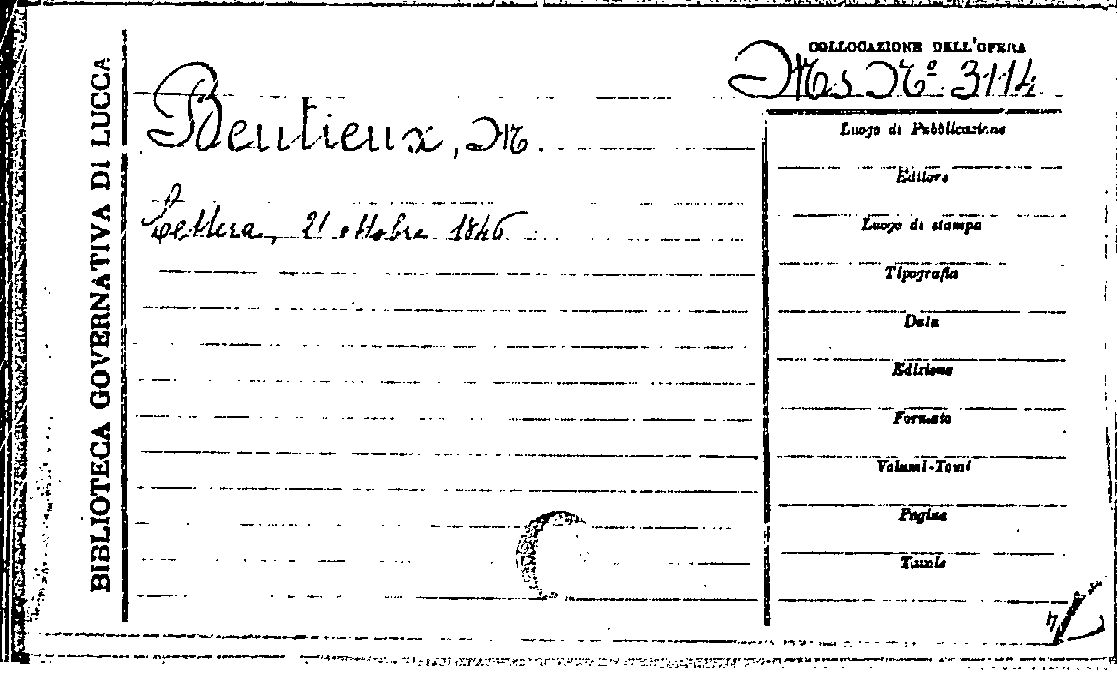 BIBLIOTECA GOVERNATIVA DI LUCCA
COLLOCAZIONE DELL'OPERA
Ms Nº. 3114
Beutieux, M.
Lettera, 21 ottobre 1846
Luogo di Pubblicazione
Editore
Luogo di stampa
Tipografia
Data
Edizione
Formato
Volumi-Tomi
Pagine
Tavole